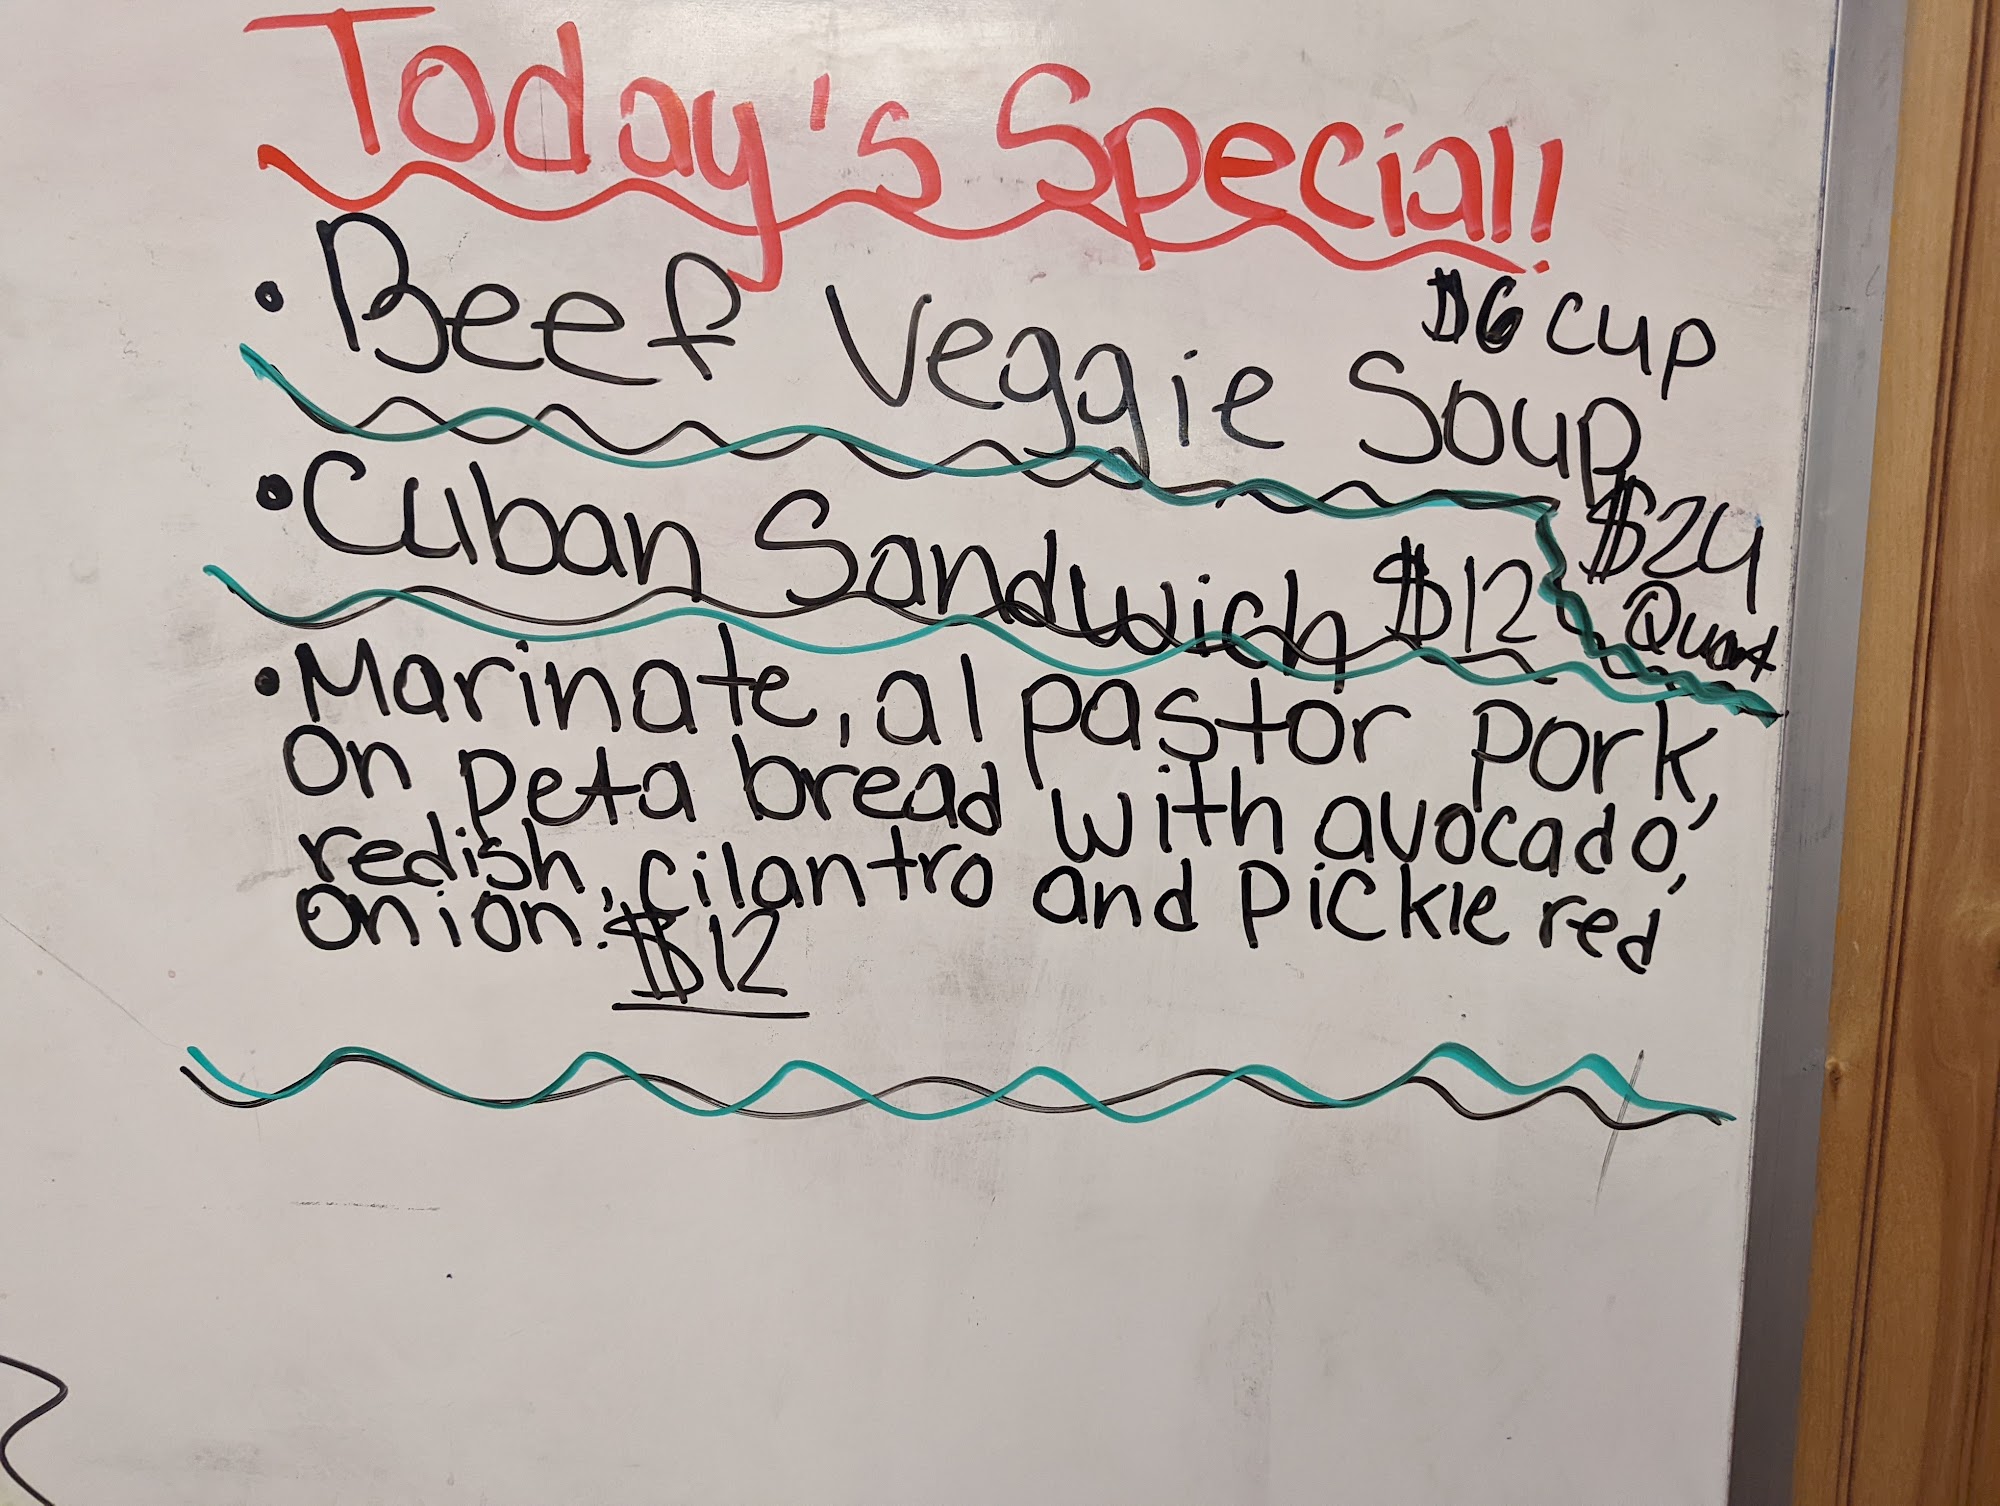 Today's Special!
• Beef Veggie Soup $6 cup
$24
Quart
• Cuban Sandwich $12
• Marinate, al pastor pork,
on peta bread with avocado,
redish, cilantro and pickle red
onion. $12